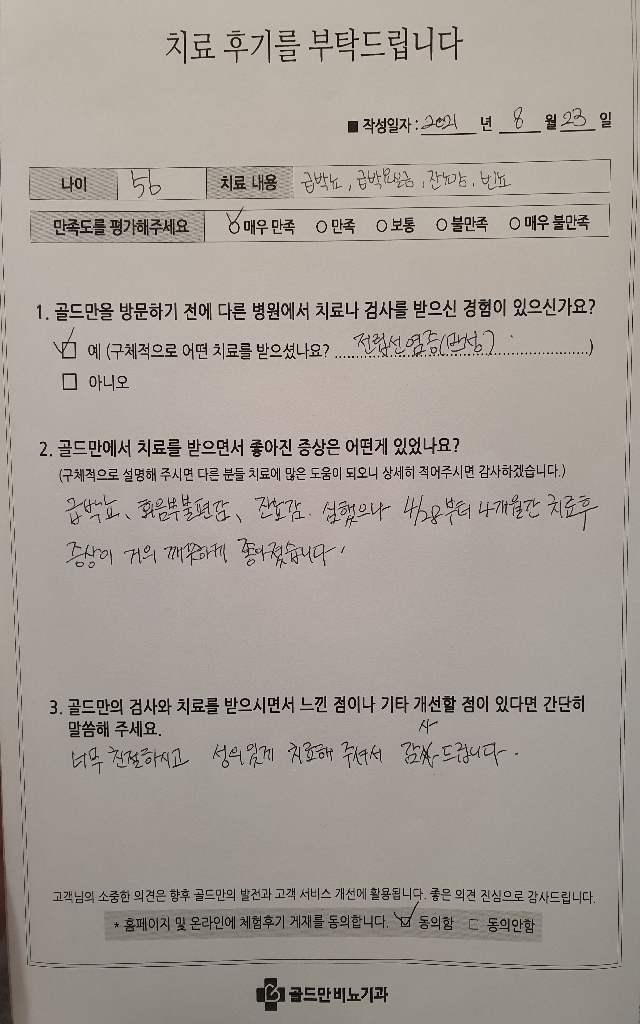 치료 후기를 부탁드립니다
■ 작성일자 : 2021 년 8 월 23 일
나이 56 치료 내용 급박뇨, 급박요실금, 잔뇨감, 빈뇨
만족도를 평가해주세요 매우 만족 만족 보통 불만족 매우 불만족
1. 골드만을 방문하기 전에 다른 병원에서 치료나 검사를 받으신 경험이 있으신가요?
예 (구체적으로 어떤 치료를 받으셨나요? 전립선염증(만성) )
아니오
2. 골드만에서 치료를 받으면서 좋아진 증상은 어떤게 있었나요?
(구체적으로 설명해 주시면 다른 분들 치료에 많은 도움이 되오니 상세히 적어주시면 감사하겠습니다.)
급박뇨, 회음부불편감, 잔뇨감. 심했으나 4/28부터 4개월간 치료후
증상이 거의 깨끗하게 좋아졌습니다.
3. 골드만의 검사와 치료를 받으시면서 느낀 점이나 기타 개선할 점이 있다면 간단히
말씀해 주세요.
너무 친절하시고 성의있게 치료해 주셔서 감사드립니다.
고객님의 소중한 의견은 향후 골드만의 발전과 고객 서비스 개선에 활용됩니다. 좋은 의견 진심으로 감사드립니다.
* 홈페이지 및 온라인에 체험후기 게재를 동의합니다. 동의함 동의안함
골드만비뇨기과